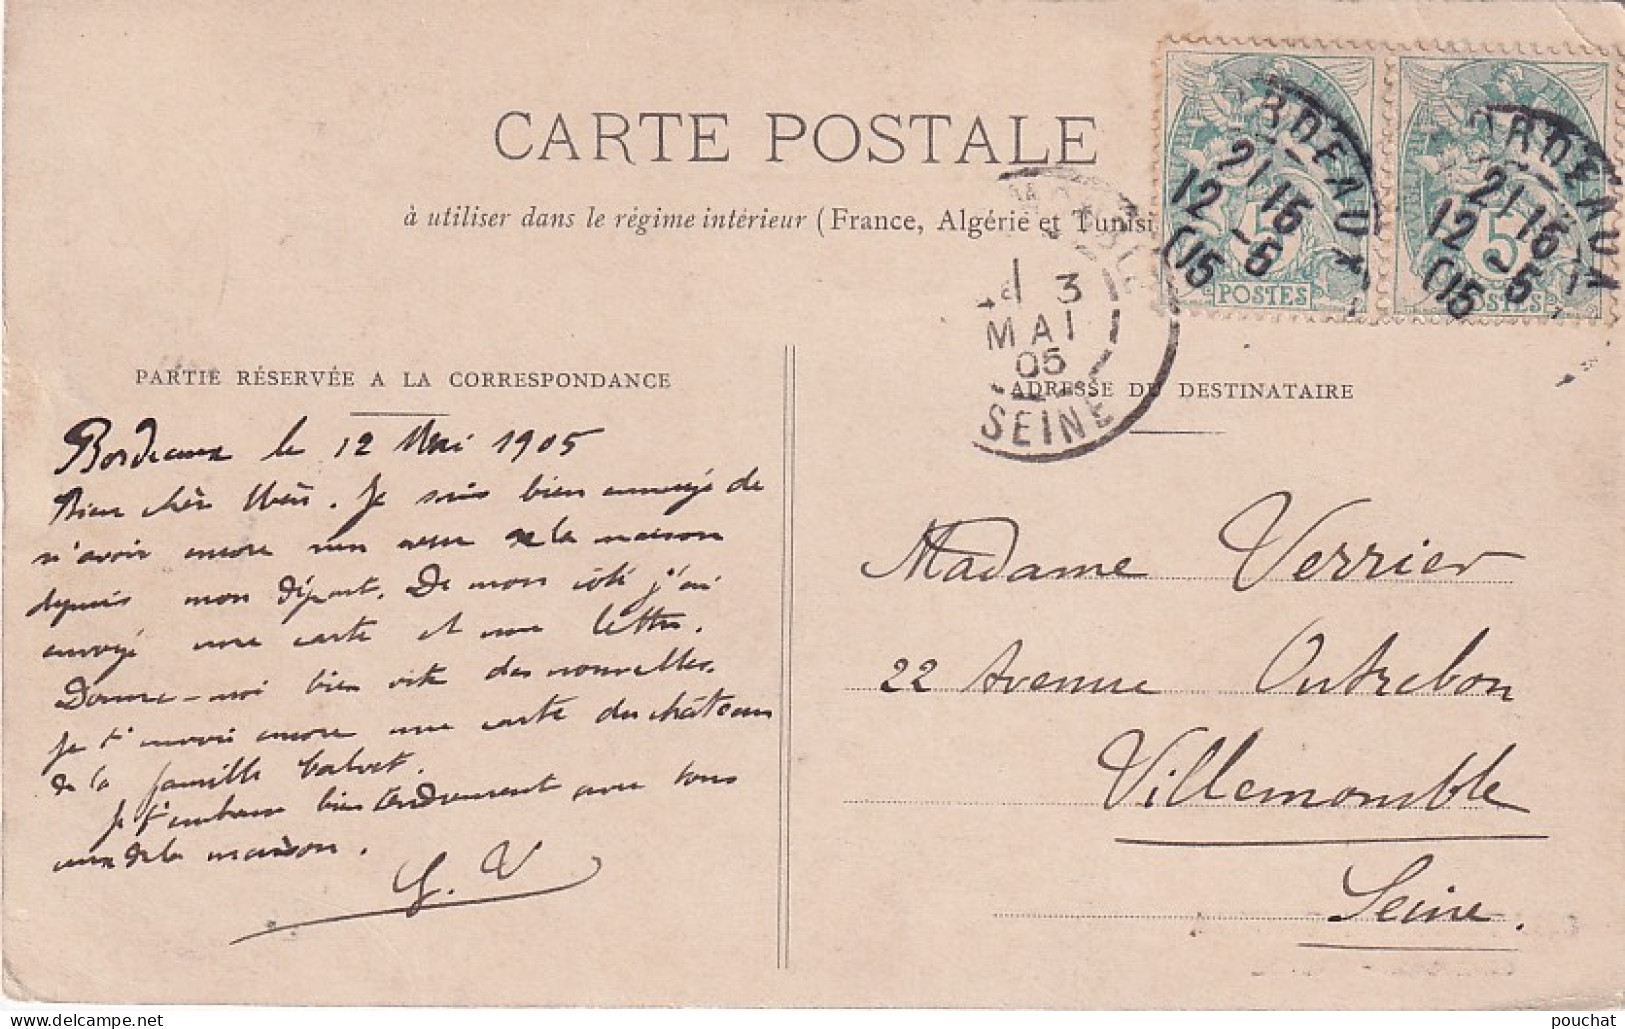 CARTE POSTALE
à utiliser dans le régime intérieur (France, Algérie et Tunisi
PARTIE RÉSERVÉE A LA CORRESPONDANCE
Bordeaux le 12 Mai 1905
Bien chère . Je suis bien ennuyé de
n'avoir encore rien de la maison
depuis mon départ. De mon côté j'ai
envoyé une carte et une lettre.
Donne-moi bien vite des nouvelles.
Je t'envoie encore une carte du château
de la famille Calvet.
Je t'embrasse bien tendrement avec tous
ceux de la maison.
G. V
ADRESSE DU DESTINATAIRE
Madame Verrier
22 Avenue Outrebon
Villemomble
Seine.
ORDEAUX
21 15
12 -5
05
5
POSTES
ORDEAUX
21 15
12 -5
05
5
POSTES
3
MAI
05
SEINE
pouchat